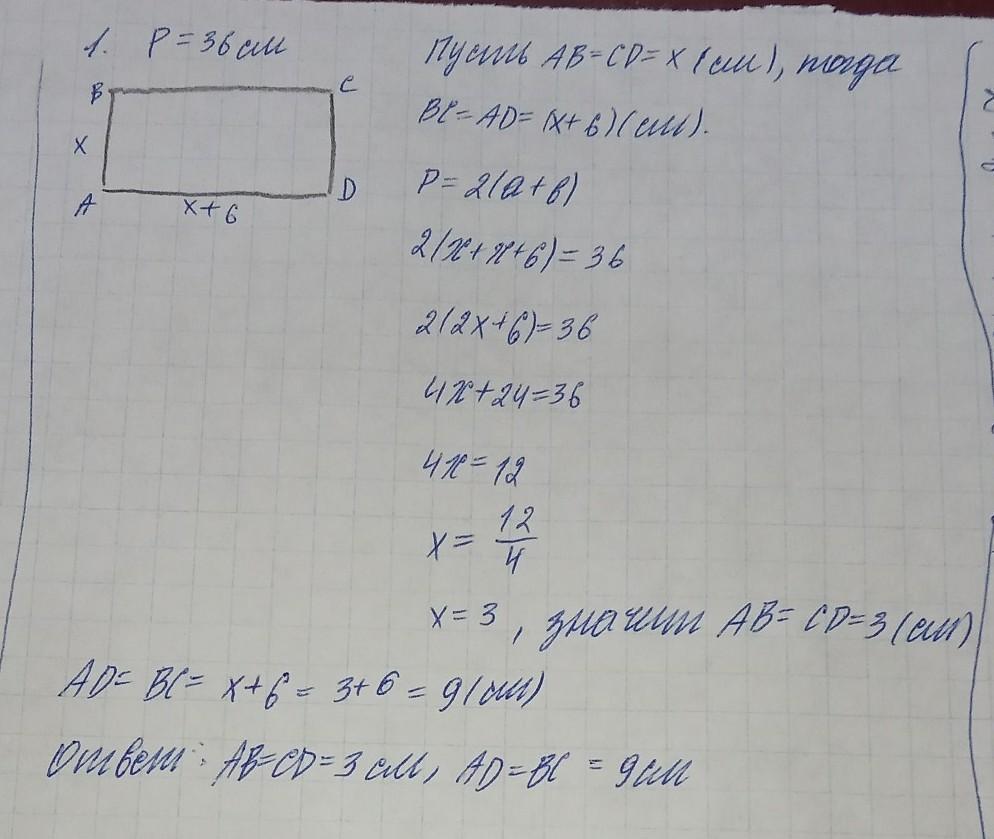 1. P = 36 см
B C
x
A D
x+6
Пусть AB=CD=x (см), тогда
BC=AD=(x+6)(см).
P=2(a+b)
2(x+x+6)=36
2(2x+6)=36
4x+24=36
4x=12
x= 12/4
x=3, значит AB=CD=3(см)
AD=BC=x+6=3+6=9(см)
Ответ: AB=CD=3см, AD=BC=9см